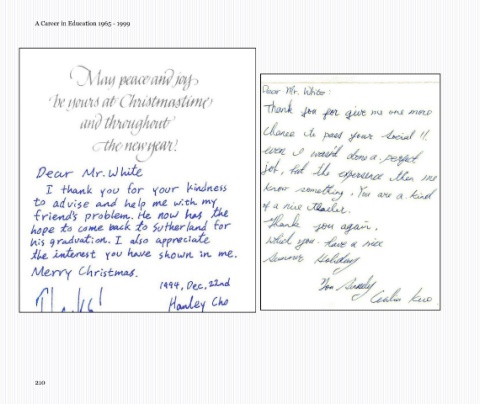 A Career in Education 1965 - 1999
May peace and joy
be yours at Christmastime
and throughout
the new year!
Dear Mr. White
I thank you for your kindness
to advise and help me with my
friend's problem. He now has the
hope to come back to Sutherland for
his graduation. I also appreciate
the interest you have shown in me.
Merry Christmas.
1994, Dec, 22nd
Thanks!
Hanley Cho
Dear Mr. White:
Thank you for give me one more
chance to pass your Social 11.
even I wasn't done a perfect
job, but the experience then me
know something. You are a kind
of a nice teacher.
Thank you again.
wish you have a nice
Summer Holiday
Sincerely
Cecilia Kuo
210